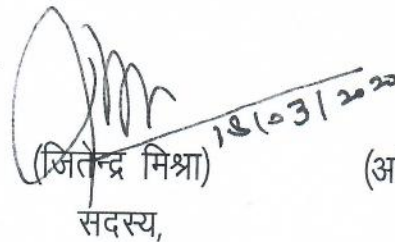 18/03/2020
(जितेन्द्र मिश्रा) (अ
सदस्य,